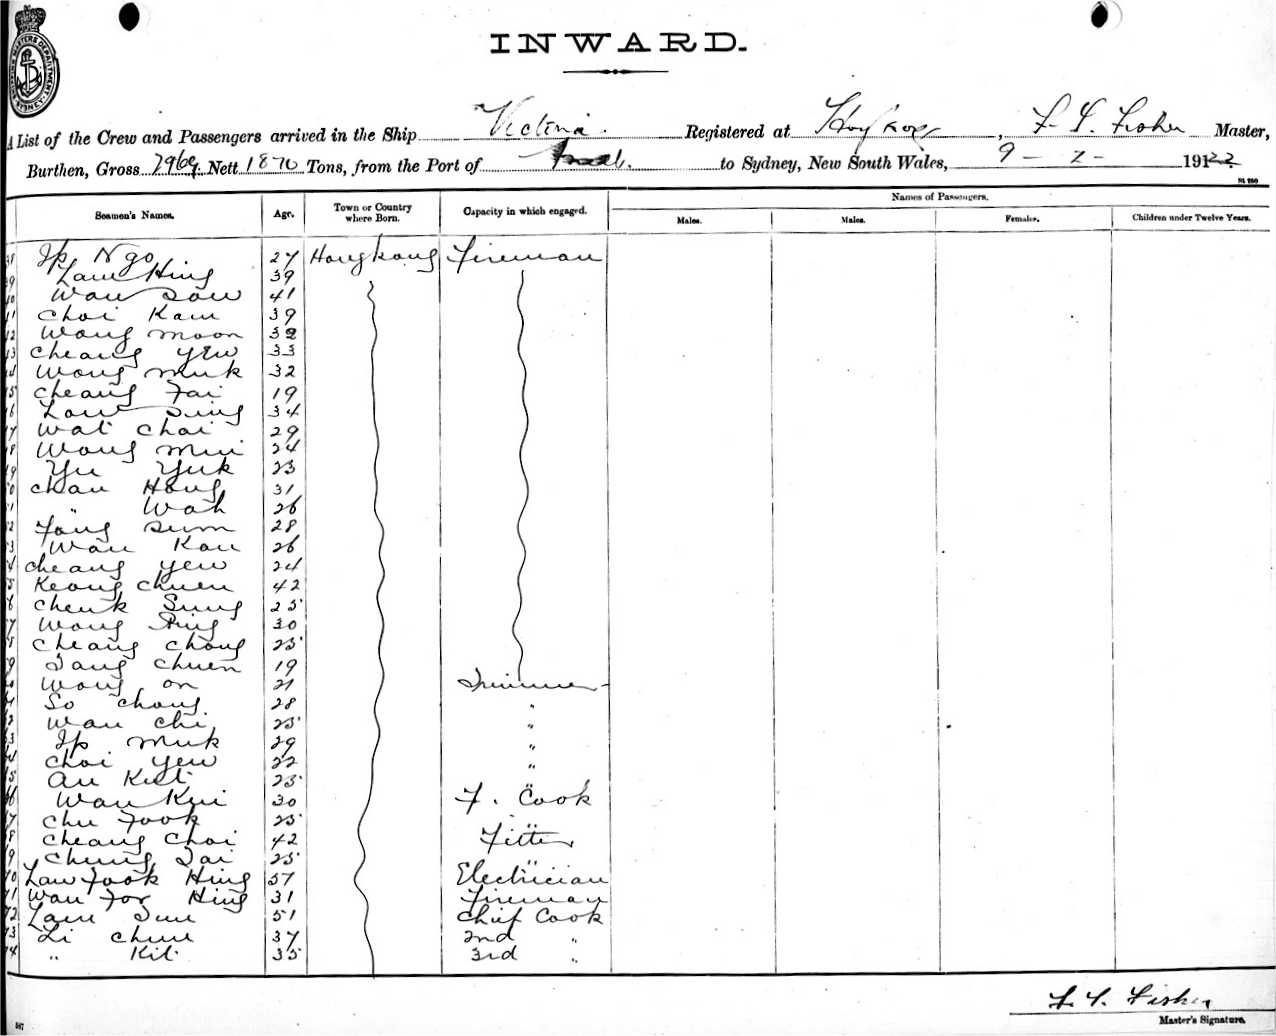 SHIPPING MASTERS DEPARTMENT SYDNEY
INWARD.
A List of the Crew and Passengers arrived in the Ship Victoria. Registered at Hongkong, F. S. Fisher Master,
Burthen, Gross 2969 Nett 1870 Tons, from the Port of to Sydney, New South Wales, 9 - 2 - 1922
Names of Passengers.
Seamen's Names. Age. Town or Country where Born. Capacity in which engaged. Males. Males. Females. Children under Twelve Years.
38 Ip Ngo 27 Hongkong Fireman
39 Lam Hing 39
40 Wan Sow 41
41 Choi Kam 39
42 Wong Moon 32
43 Cheang Yew 33
44 Wong Muk 32
45 Cheang Fai 19
46 Low Sing 34
47 Wat Chai 29
48 Wong Mui 24
49 Yu Yuk 23
50 Chan Hong 31
51 " Wah 26
52 Fong Sum 28
53 Wan Kau 26
54 Cheang Yew 24
55 Keong Chuen 42
56 Cheuk Sung 25
57 Wong Hing 30
58 Cheang Chong 25
59 Tang Chuen 19
60 Wong On 21 Trimmer
61 So Chong 28 "
62 Wan Chi 25 "
63 Ip Muk 29 "
64 Choi Yew 22 "
65 Au Kut 25 "
66 Wan Kui 30 F. Cook
67 Chu Fook 25 "
68 Cheang Choi 42 Fitter
69 Chung Tai 25 "
70 Law Fook Hing 57 Electrician
71 Wan For Hing 31 Fireman
72 Lam Sun 51 Chief Cook
73 Li Chun 37 2nd "
74 " Kit 35 3rd "
F. S. Fisher
Master's Signature.